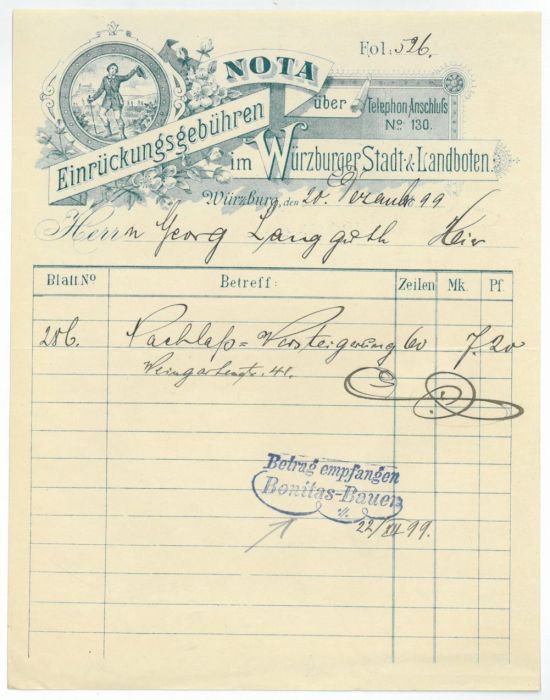 Fol: 526.
NOTA
über
Telephon-Anschluß
No. 130.
Einrückungsgebühren
im Würzburger Stadt-&Landboten.
Würzburg, den 20. Dezemb. 1899
Herrn Georg Langguth Hier
Blatt.No Betreff: Zeilen Mk. Pf.
286. Nachlaß=Versteigerung 60 7.20
Weingartenstr. 41.
Betrag empfangen
Bonitas-Bauer
22/XII 99.